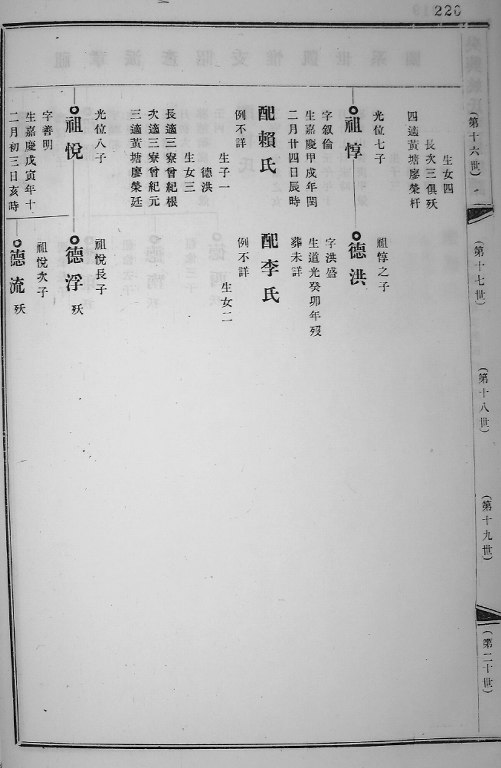 220
(第十六世)
(第十七世)
(第十八世)
(第十九世)
(第二十世)
生女四
長次三俱殀
四適黃塘廖榮杆
光位七子
祖惇
字叙倫
生嘉慶甲戌年閏
二月廿四日辰時
配賴氏
例不詳
生子一
德洪
生女三
長適三寮曾紀根
次適三寮曾紀元
三適黃塘廖榮廷
光位八子
祖悅
字善明
生嘉慶戊寅年十
二月初三日亥時
祖惇之子
德洪
字洪盛
生道光癸卯年歿
葬未詳
配李氏
例不詳
生女二
祖悅長子
德浮 殀
祖悅次子
德流 殀